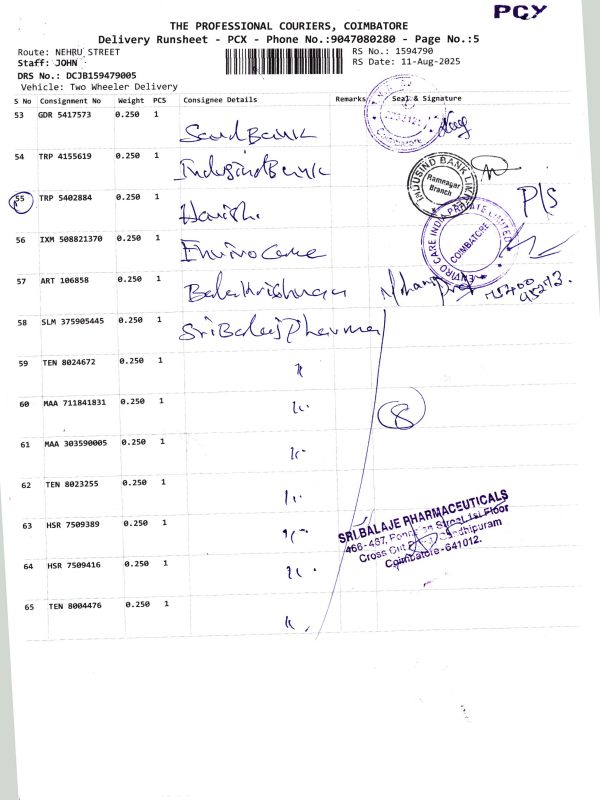 PCX
THE PROFESSIONAL COURIERS, COIMBATORE
Delivery Runsheet - PCX - Phone No.:9047080280 - Page No.:5
Route: NEHRU STREET
RS No.: 1594790
Staff: JOHN
RS Date: 11-Aug-2025
DRS No.: DCJB159479005
Vehicle: Two Wheeler Delivery
S No Consignment No Weight PCS Consignee Details Remarks Seal & Signature
53 GDR 5417573 0.250 1
Coimbatore
54 TRP 4155619 0.250 1 IndusindBank
INDUSIND BANK LIMITED
Ramnagar
Branch
55 TRP 5402884 0.250 1 Harish P/S
56 IXM 508821370 0.250 1 Enviro Care
ENVIRO CARE INDIA PRIVATE LIMITED
COIMBATORE
57 ART 106858 0.250 1 Balakrishnan
58 SLM 375905445 0.250 1 Sri Balaji Pharma
59 TEN 8024672 0.250 1 "
60 MAA 711841831 0.250 1 "
8
61 MAA 303590005 0.250 1 "
62 TEN 8023255 0.250 1 "
63 HSR 7509389 0.250 1 "
SRI BALAJE PHARMACEUTICALS
466-467, Street, 1st Floor
Cross Cut Gandhipuram
Coimbatore-641012.
64 HSR 7509416 0.250 1 "
65 TEN 8004476 0.250 1 "